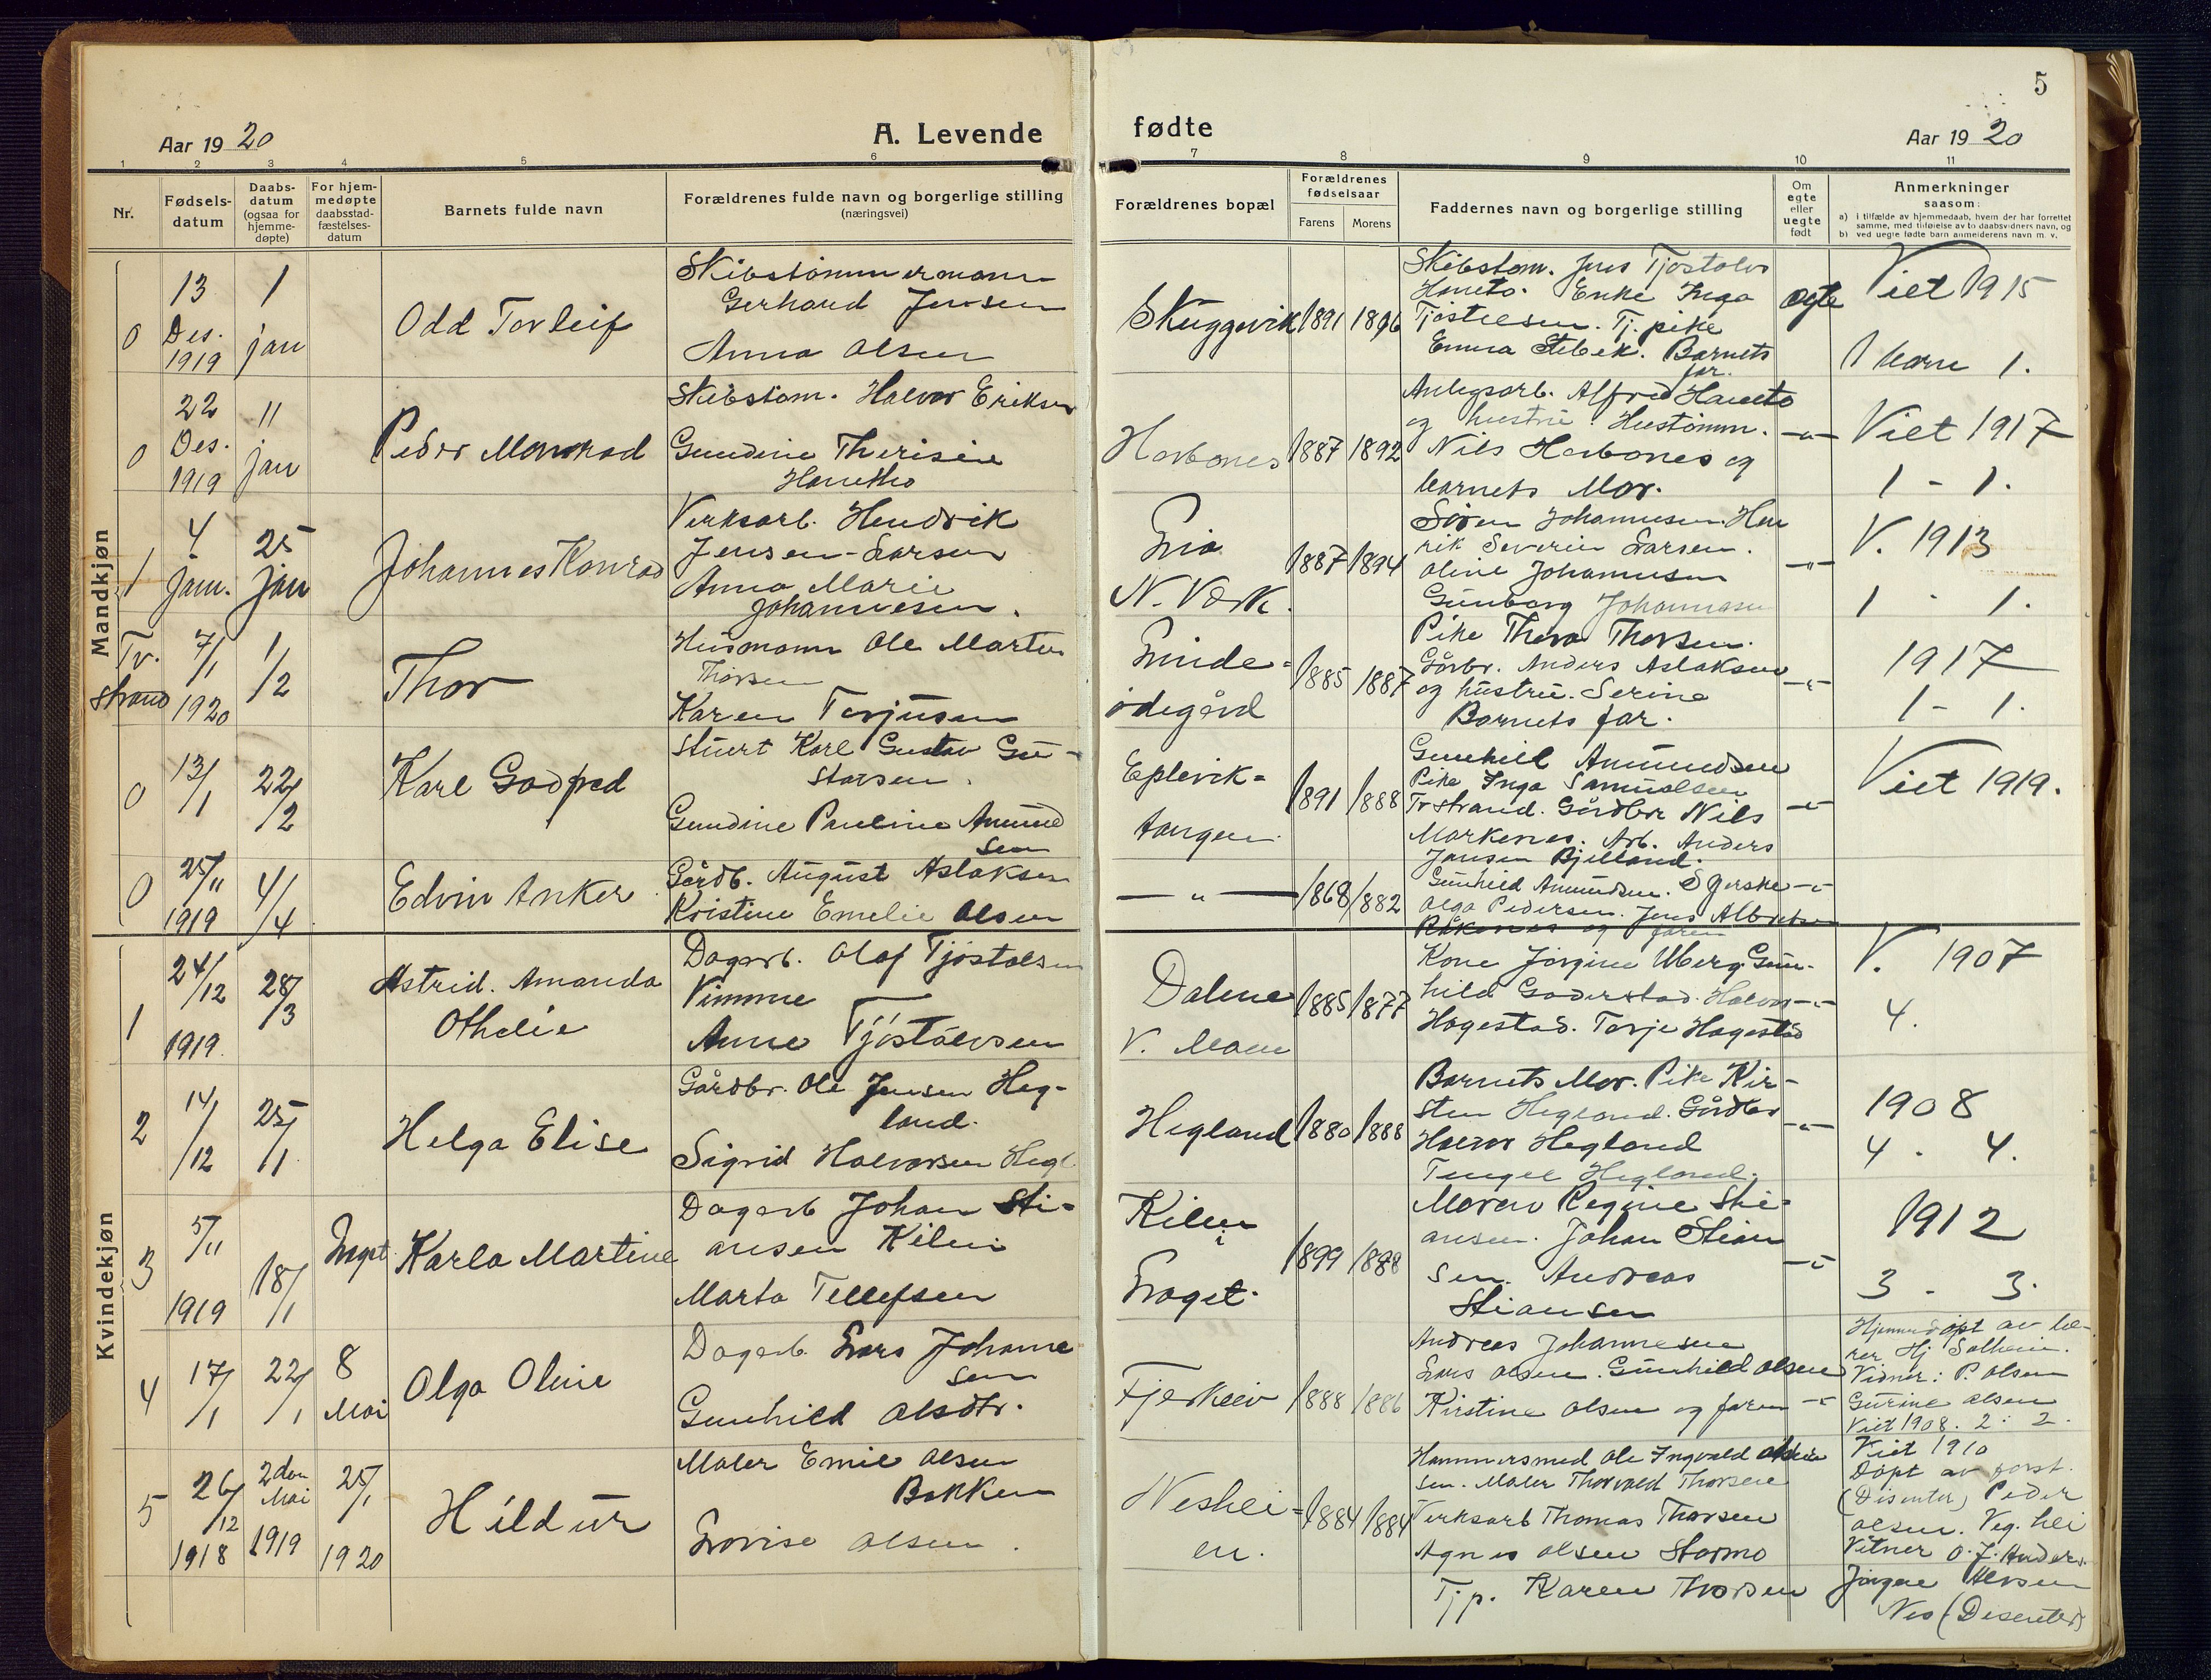 5
Aar 1920
A. Levende
fødte
Aar 1920
1 2 3 4 5 6 7 8 9 10 11
Nr.
Fødsels-
datum
Daabs-
datum
(ogsaa for
hjemme-
døpte)
For hjem-
medøpte
daabsstad-
fæstelses-
datum
Barnets fulde navn
Forældrenes fulde navn og borgerlige stilling
(næringsvei)
Forældrenes bopæl
Forældrenes
fødselsaar
Farens Morens
Faddernes navn og borgerlige stilling
Om
egte
eller
uegte
født
Anmerkninger
saasom:
a) i tilfælde av hjemmedaab, hvem der har forrettet
samme, med tilføielse av to daabsvidners navn, og
b) ved uegte fødte barn anmelderens navn m. v.
Mandkjøn
0
13
Des.
1919
1
jan
Odd Torleif
Skibstømmermann
Gerhard Jensen
Anna Olsen
Skuggevik
1891 1896
Skibstøm. Jens Tjøstolvs
Haneto. Enke Inga
Tjøstelsen. Tj. pike
Emma Stebek. Barnets
far.
egte
Viet 1915
1 barn 1.
0
22
Des.
1919
11
jan
Peder Monrad
Skibstøm. Halvor Eriksen
Gundine Therisie
Hanetho
Harbones
1887 1892
Anlegsarb. Alfred Haneto
og hustru. Hustømm.
Nils Harbones og
barnets Mor.
-"-
Viet 1917
1 - 1.
1
4
jan.
25
jan
Johannes Konrad
Verksarb. Hendrik
Jensen-Larsen
Anna Marie
Johannesen.
N. Verk.
1887 1894
Søren Johannesen. Hen
rik Severin Larsen.
Oline Johannesen
Gunborg Johannesen
-"-
V. 1913
1 - 1.
Tv.
strand
7/1
1920
1/2
Thor
Husmann Ole Martin
Thorsen
Karen Terjusen
Linde-
ødegård
1885 1887
Pike Thora Thorsen.
Gårbr. Anders Aslaksen
og hustru. Serine
Barnets far.
-"-
1917
1 - 1.
0
13/1
22/2
Karl Godfred
Stuert Karl Gustav Gu-
stavsen.
Gundine Pauline Amund
sen
Eplevik-
tangen.
1891 1888
Gunhild Amundsen
Pike Inga Samuelsen
Tvstrand. Gårdbr Nils
Markenes. Arb. Anders
Jansen Bjelland.
-"-
Viet 1919.
0
25/11
1919
4/4
Edvin Anker
Gårdb. August Aslaksen
Kristine Emelie Olsen
-"-
1868 1882
Gunhild Amundsen.
Olga Pedersen. Jens Albretsen
og faren
-"-
Kvindekjøn
1
24/12
1919
28/3
Astrid. Amanda
Othelie
Dagarb. Olaf Tjøstolsen
Vimme
Anne Tjøstolvsen
Dalene
V. Moen
1885 1877
Kone Jørgine Uberg. Gun-
hild Goderstad. Halvor
Hagestad. Terje Hagestad
-"-
V. 1907
4.
2
14/12
25/1
Helga Elise
Gårdbr. Ole Jensen Heg-
land.
Sigrid Halvorsen Hegl
Hegland
1880 1888
Barnets Mor. Pike Kir-
sten Hegland. Gårdbr
Halvor Hegland
Tengel Hegland.
-"-
1908
4 - 4.
3
5/11
1919
18/1
Karla Martine
Dagarb Johan Sti-
ansen Kilen
Marta Tellefsen
Kilen
i
1899 1888
Moren Regine Sti-
ansen. Johan Stian
sen. Andreas
Stiansen
-"-
1912
3 - 3.
4
17/1
22/1
8
Mai
Olga Oline
Dagarb Lars Johanne
sen
Gunhild Olsdtr.
Fjerkleiv
1888 1886
Andreas Johannesen
Lars Olsen. Gunhild Olsen
Kirstine Olsen og faren
-"-
Hjemmedøpt av læ-
rer Hj Solheim.
Vidner: P. Olsen
Gurine Olsen
Viet 1908. 2 : 2.
5
26/12
1918
2den
Mai
1919
25/1
1920
Hildur
Maler Emil Olsen
Bakken
Lovise Olsen.
Neshei-
en.
1884 1884
Hammersmed Ole Ingvald
sen. Maler Thorvald Thorsen
Verksarb Thomas Thorsen
Agnes Olsen Stormo
Tj p. Karen Thorsen
Viet 1910
Døpt av forst.
(Disenter) Peder
Olsen. Veg. hei
Vitner O. J. Anders.
Jørgen
Nes (Disenter)